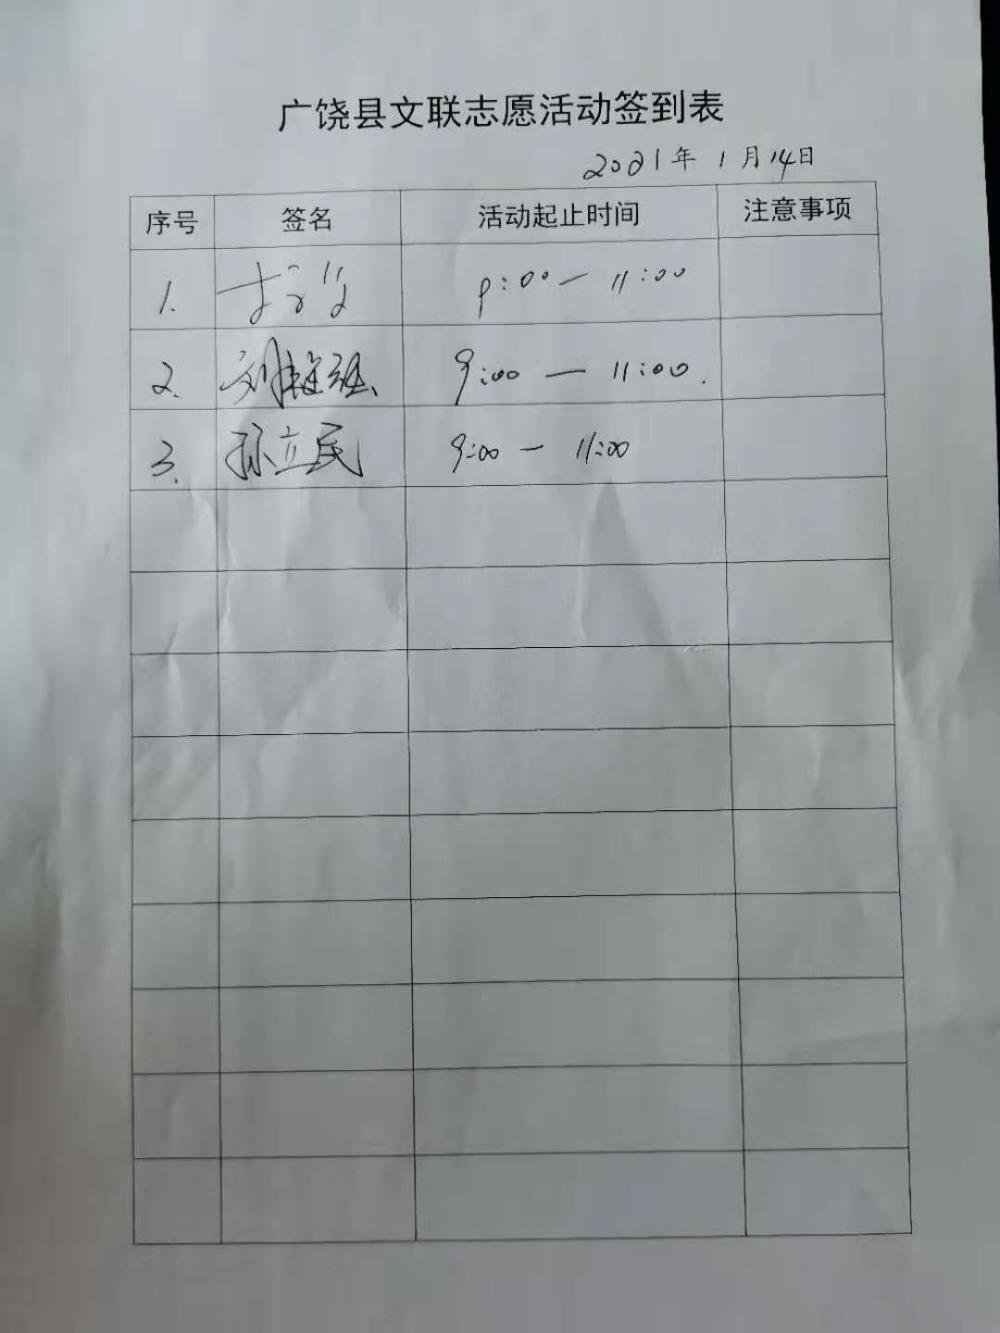 广饶县文联志愿活动签到表
2021年1月14日
序号 签名 活动起止时间 注意事项
1. 9:00 — 11:00
2. 刘 9:00 — 11:00.
3. 孙立民 9:00 — 11:00